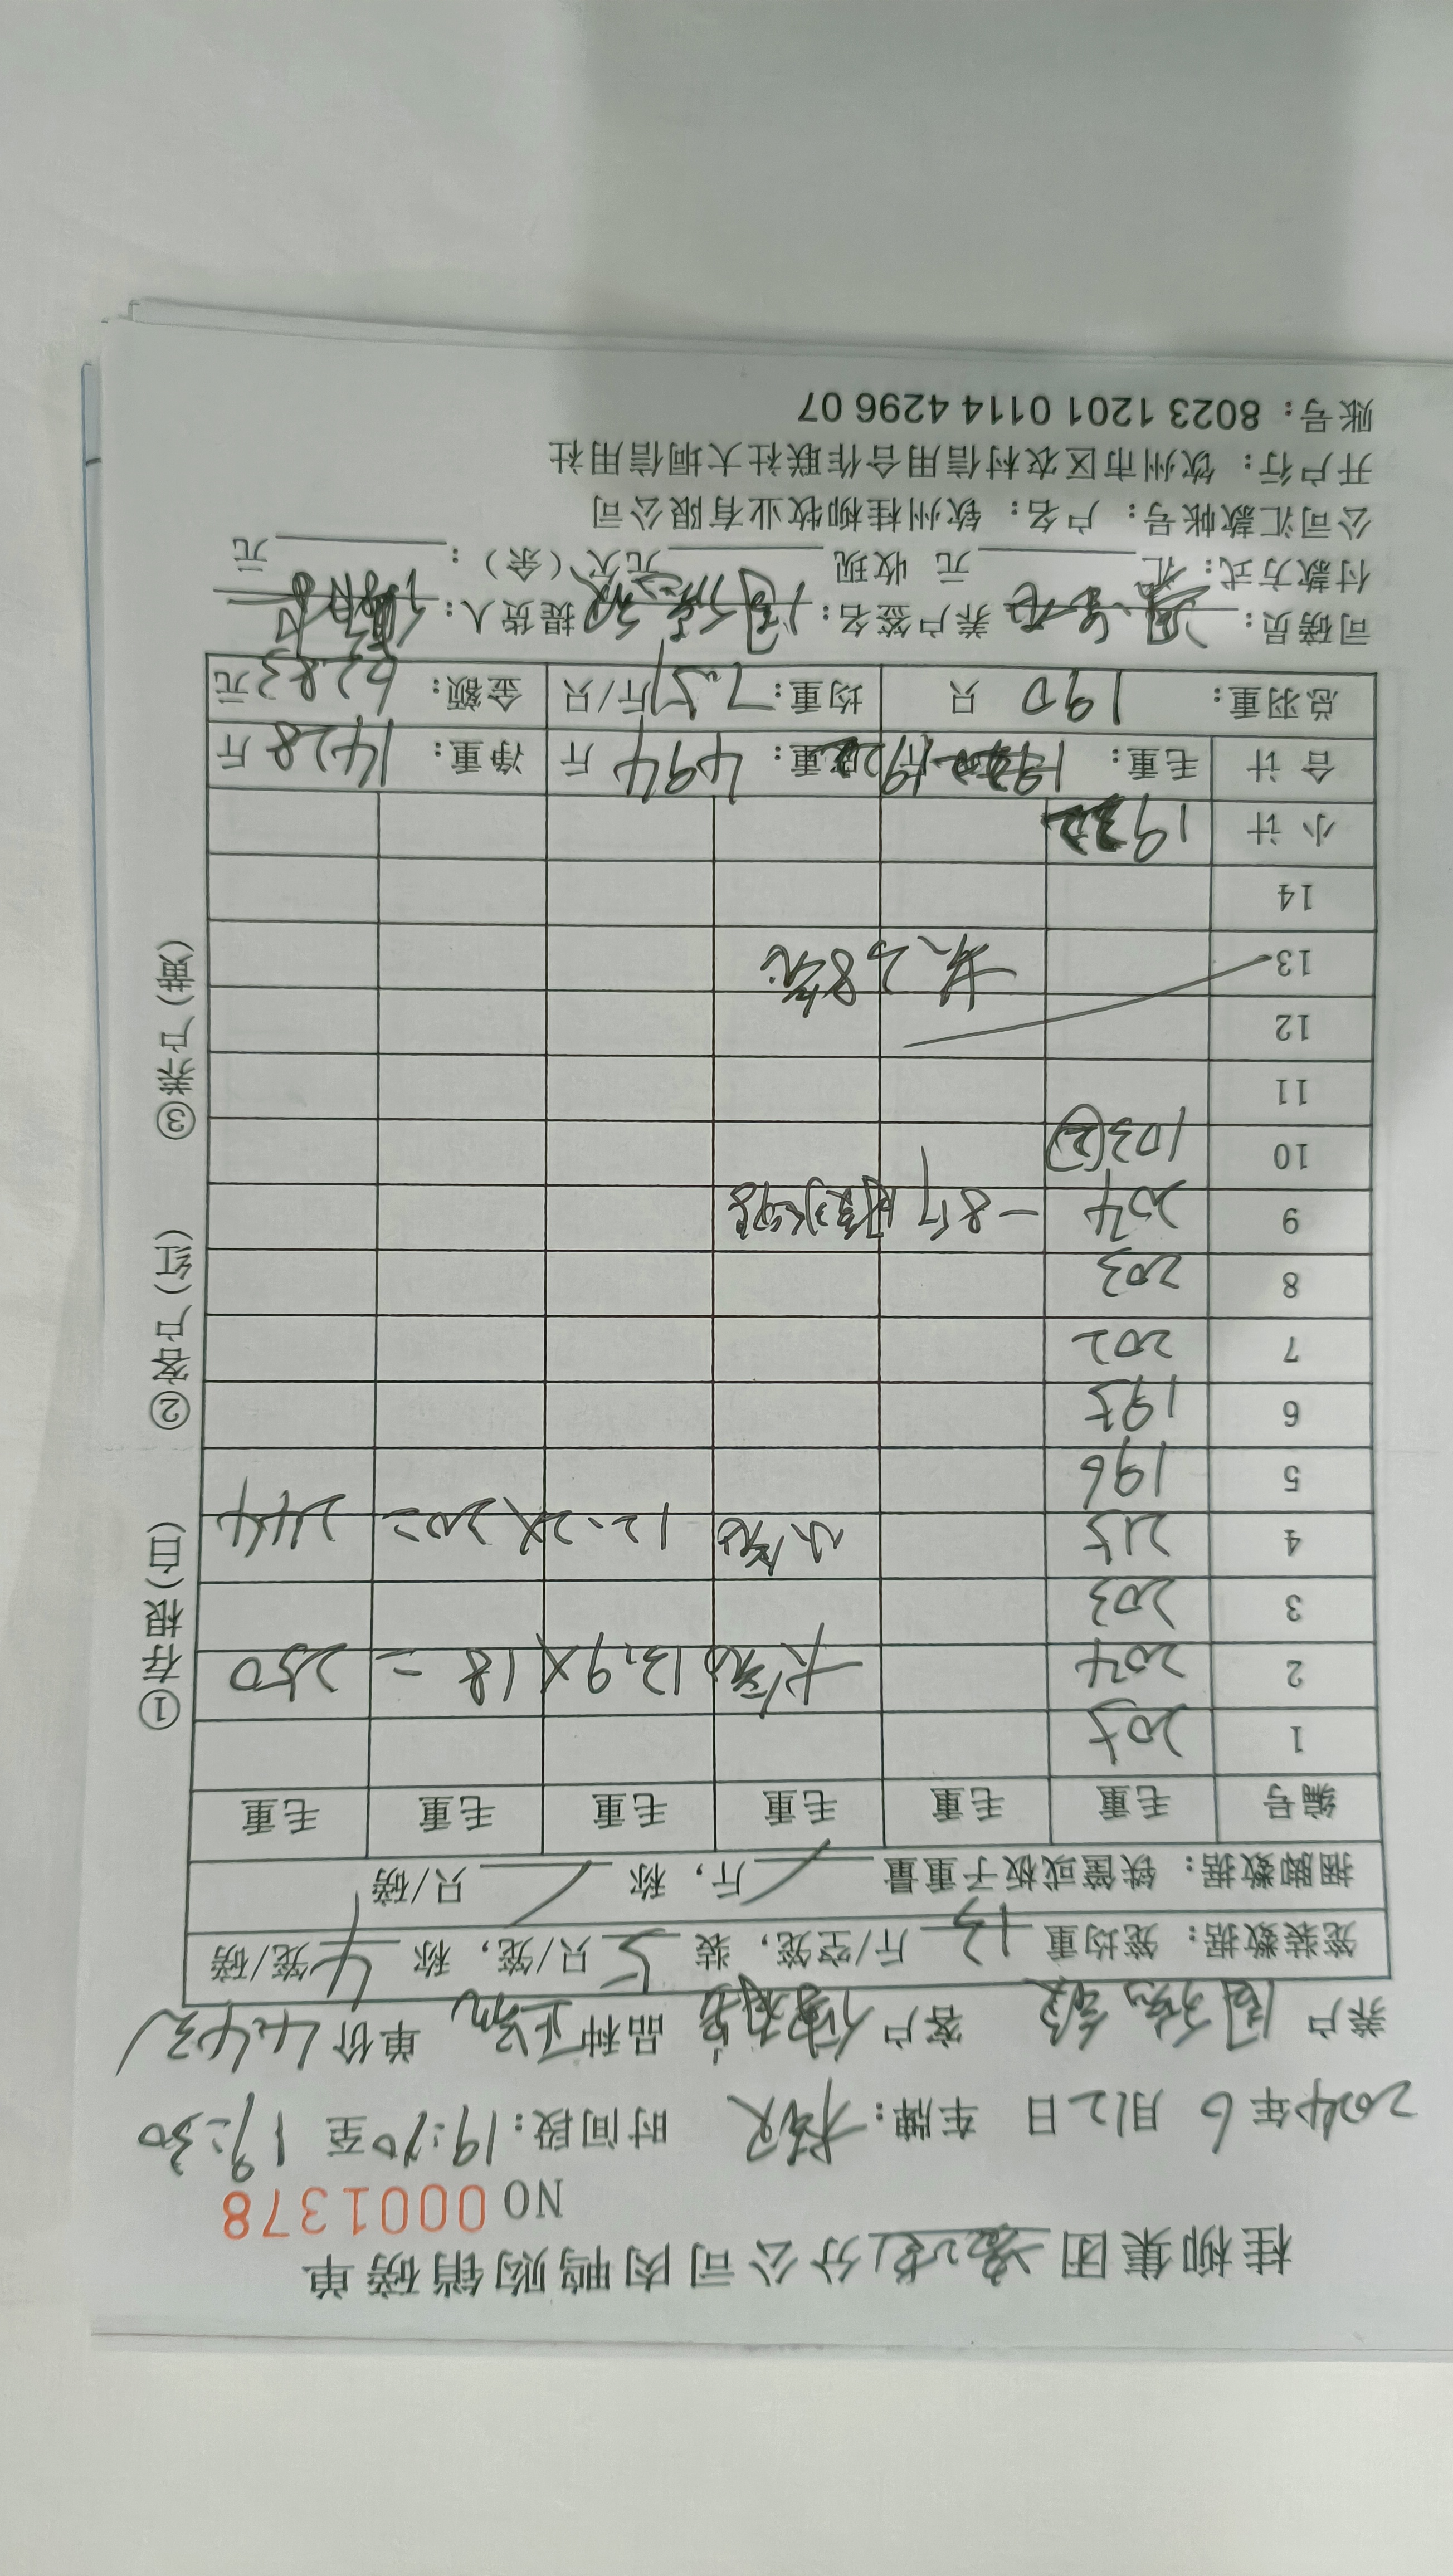 桂柳集团 分公司肉鸭购销磅单
NO 0001378
2024年6月12日 车牌: 时间段:19:20至19:30
养户 周 客户 品种 单价4.43
笼装数据: 笼均重 13 斤/空笼, 装 5 只/笼, 称 4 笼/磅
捆脚数据: 铁筐或板子重量 斤, 称 只/磅
编号 毛重 毛重 毛重 毛重 毛重 毛重
1 205
2 204 大笼 13.9×18= 250
3 203
4 215 小笼 12.2×20= 244
5 196
6 195
7 202
8 203
9 204 -8斤
10 103(2)
11
12
13 共38笼
14
小计 1922
合计 毛重: 1922 斤 皮重: 494 斤 净重: 1428 斤
总羽重: 190 只 均重: 7.51 斤/只 金额: 6283元
司磅员: 养户签名: 周 提货人:
付款方式: 汇 元 收现 元欠(余): 元
公司汇款帐号: 户名: 钦州桂柳牧业有限公司
开户行: 钦州市区农村信用合作联社大垌信用社
账号: 8023 1201 0114 4296 07
①存根(白) ②客户(红) ③养户(黄)